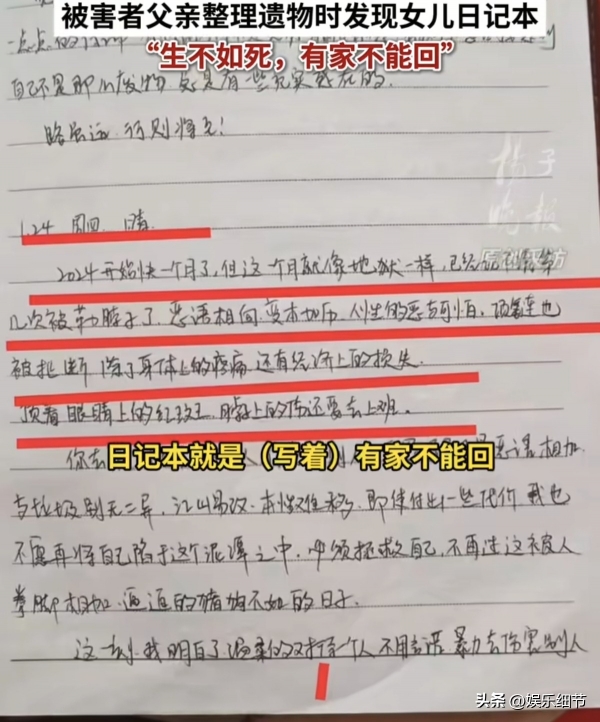 被害者父亲整理遗物时发现女儿日记本
“生不如死，有家不能回”
自己不是那么废物 总是有一些充实感在的.
路虽远 行则将至!
橘子
晚报
原创采访
1.24 周四 晴
2024开始快一个月了, 但这个月就像地狱一样, 已经记不清第
几次被勒脖子了. 恶语相向 变本加厉. 人性的恶与可怕. 项链也
被扯断 除了身体上的疼痛 还有经济上的损失.
顶着眼睛上的红斑 脖子上的伤还要去上班.
日记本就是（写着）有家不能回
恶语相加
与垃圾别无二异, 江山易改. 本性难移, 即使付出一些代价 我也
不愿再将自己陷于这个泥潭之中, 必须拯救自己, 不再过这被人
拳脚相加 逼迫的猪狗不如的日子.
这一刻, 我明白了 温柔的对待一个人 不用言语 暴力去伤害别人
头条 @娱乐细节